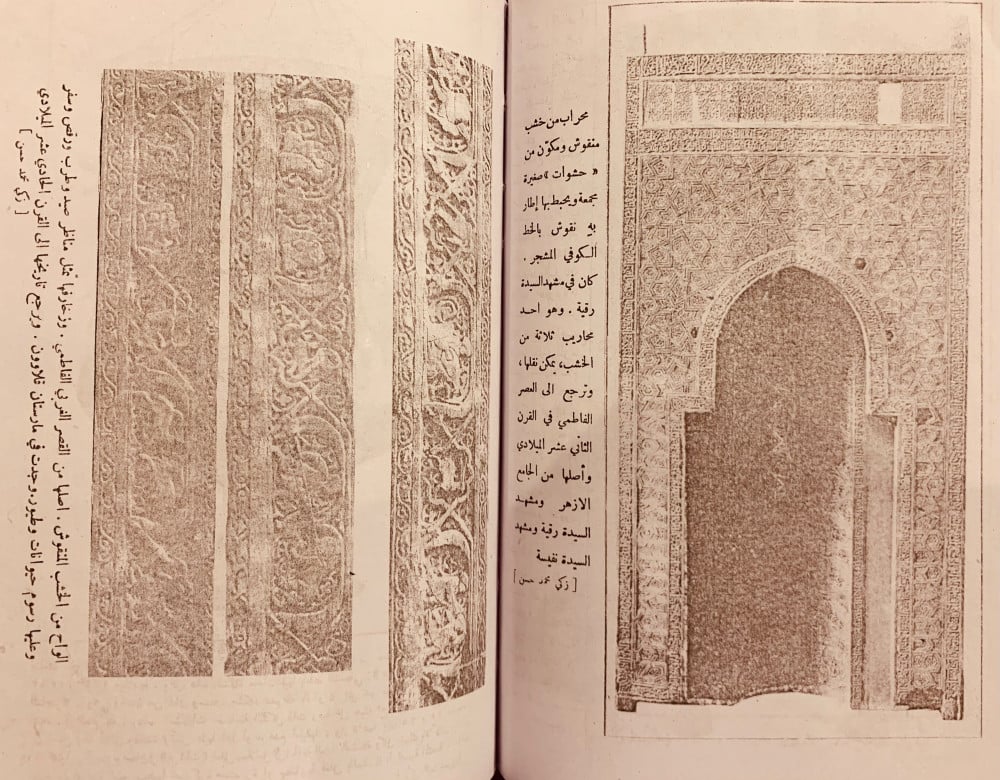 محراب من خشب
منقوش ومكوّن من
« حشوات » صغيرة
مجمعة ويحيط بها إطار
به نقوش بالخط
الكوفي المشجر .
كان في مشهد السيدة
رقية . وهو احد
محاريب ثلاثة من
الخشب، يمكن نقلها،
وترجع الى العصر
الفاطمي في القرن
الثاني عشر الميلادي
وأصلها من الجامع
الازهر ومشهد
السيدة رقية ومشهد
السيدة نفيسة
[ زكي محمد حسن ]
الواح من الخشب المنقوش . اصلها من القصر الغربي الفاطمي . وزخارفها تمثل مناظر صيد وطرب ورقص وسفر
وعليها رسوم حيوانات وطيور. وجدت في مارستان قلاوون . ويرجع تاريخها الى القرن الحادي عشر الميلادي
[ زكي محمد حسن ]